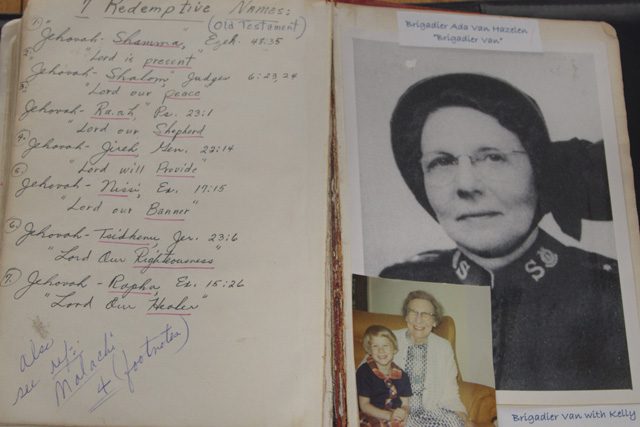 7 Redemptive Names:
(Old Testament)
1. "Jehovah - Shamma," Ezek. 48:35
"Lord is present"
2. Jehovah - Shalom, Judges 6:23,24
"Lord our peace
3. Jehovah - Ra-ah," Ps. 23:1
"Lord our Shepherd
4. Jehovah - Jireh, Gen. 22:14
"Lord will Provide"
5. Jehovah - Nissi, Ex. 17:15
"Lord our Banner"
6. Jehovah - Tsidkenu, Jer. 23:6
"Lord Our Righteousness"
7. Jehovah - Rapha, Ex. 15:26
"Lord Our Healer"
also
see ref:
Malachi
4 (footnotes)
Brigadier Ada Van Hazelen
"Brigadier Van"
S S
Brigadier Van with Kelly